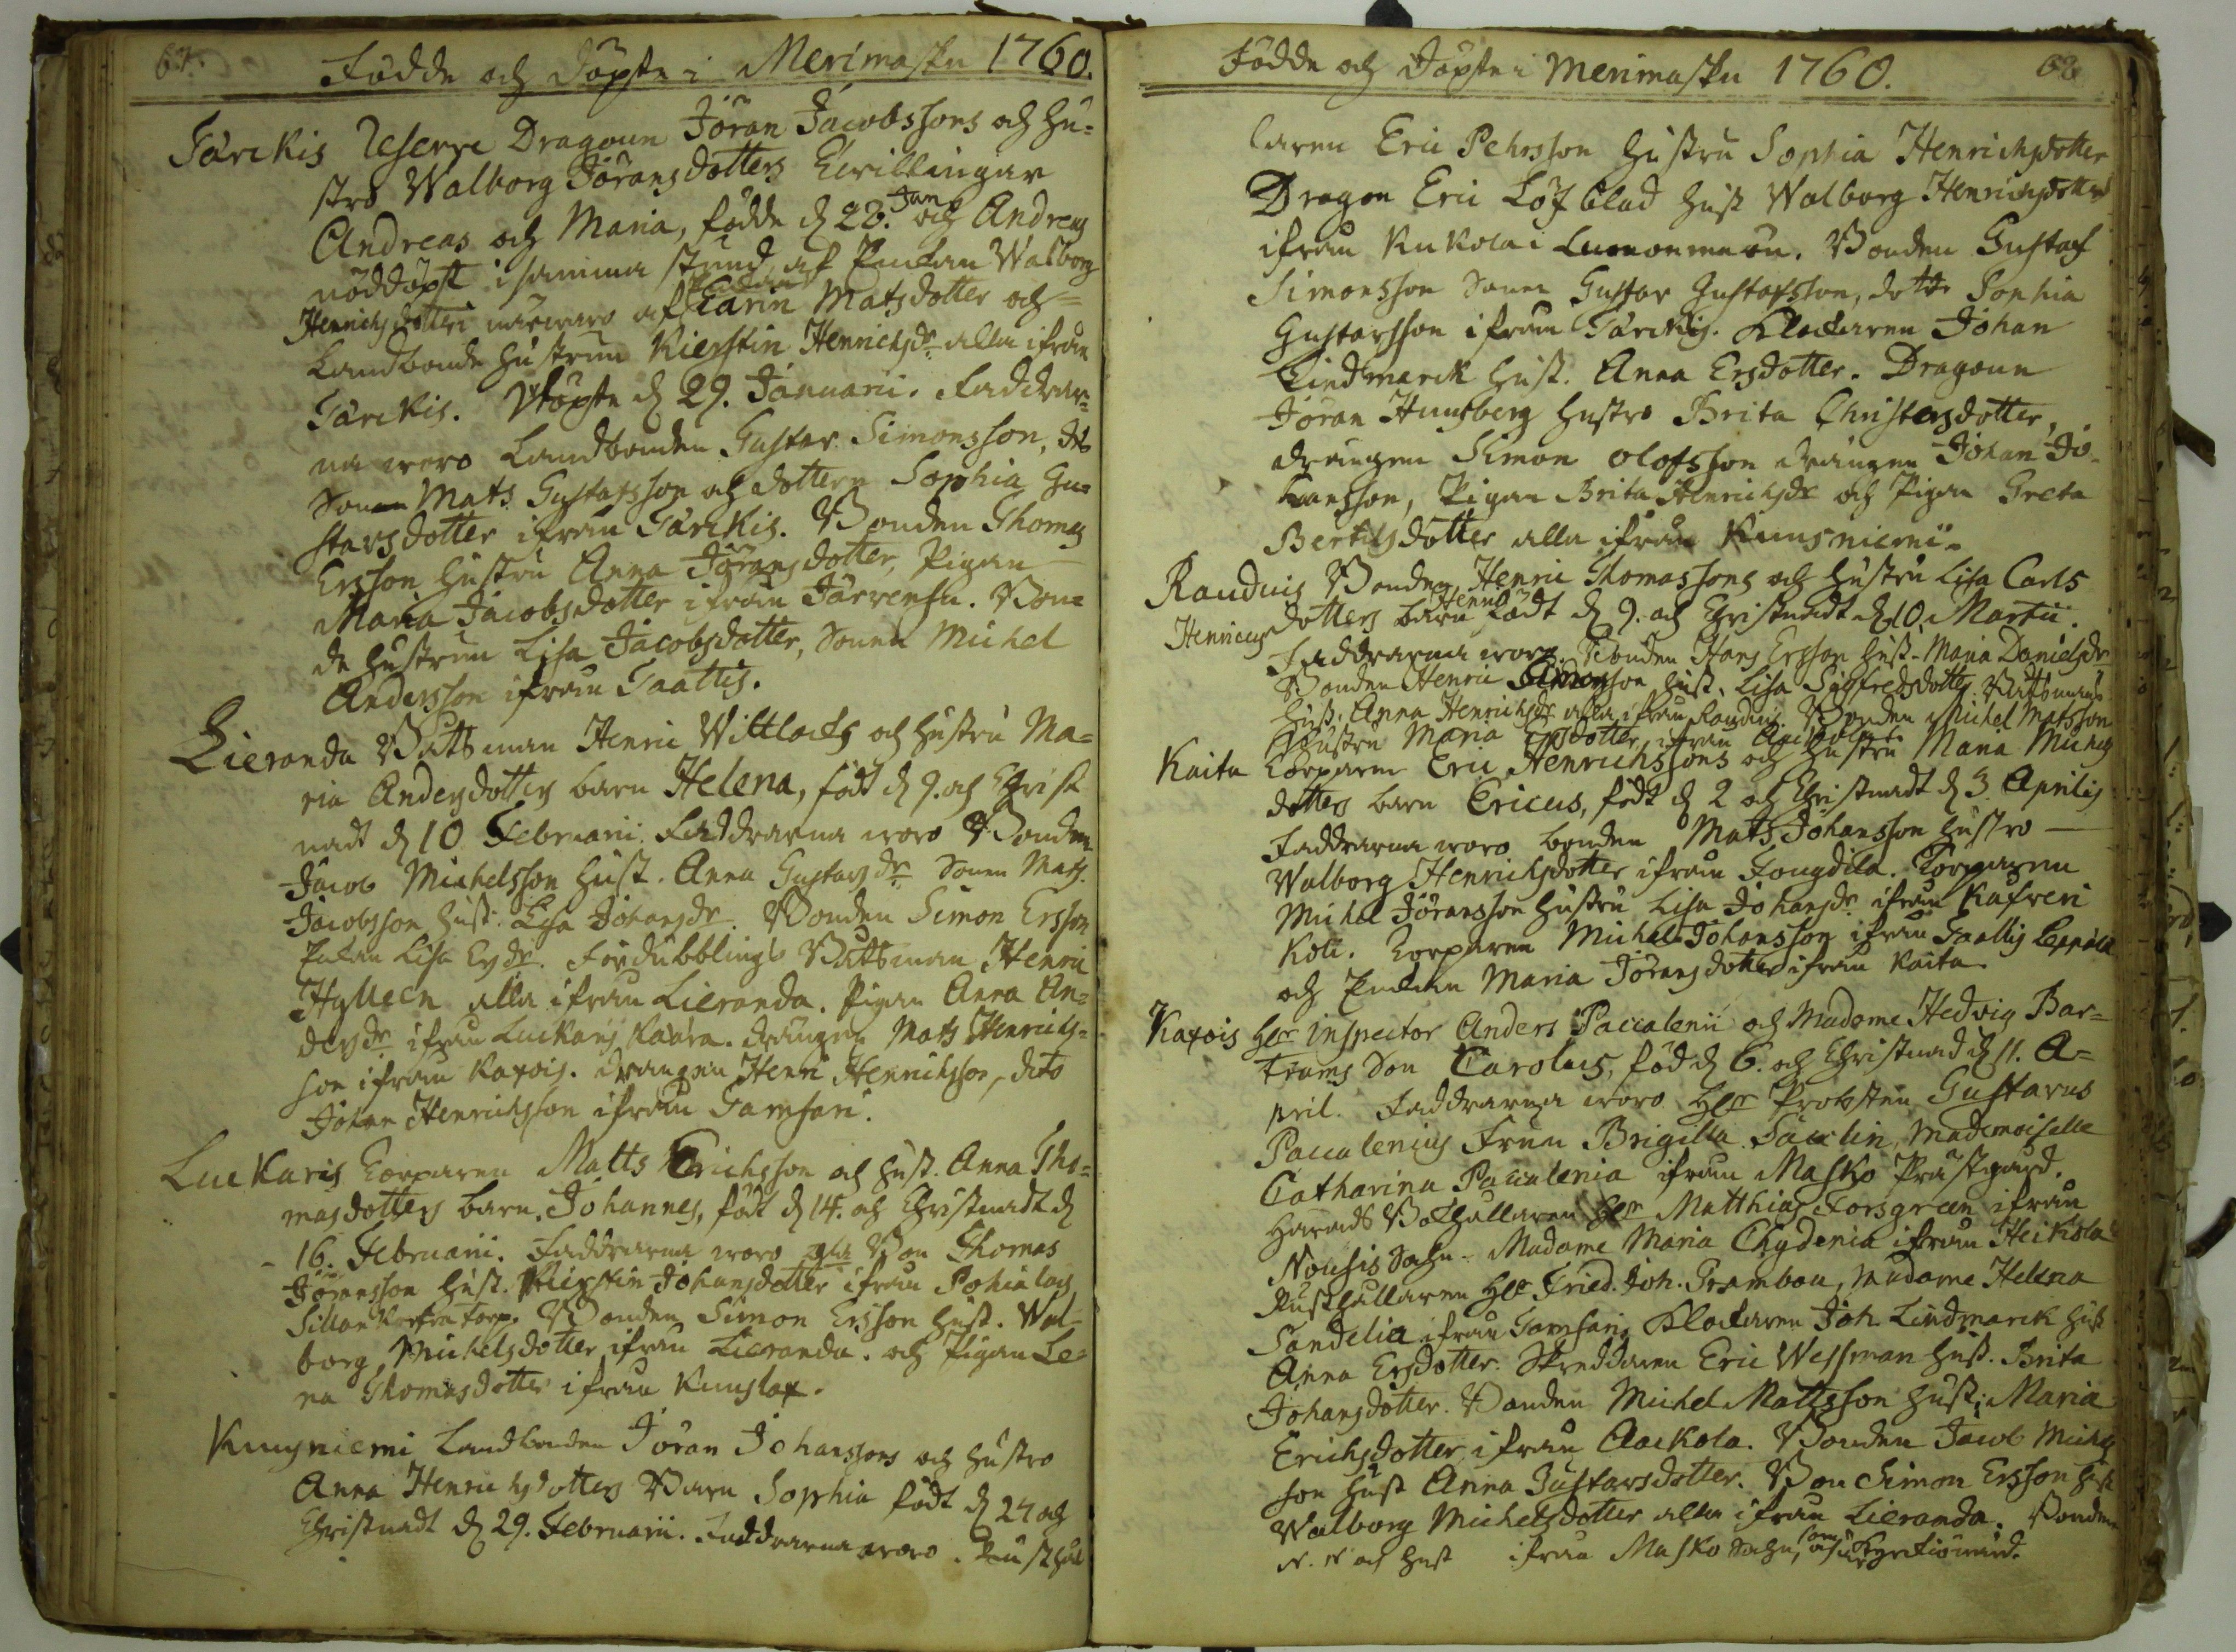 67.
Födde och Döpte i Merimasku 1760.
Särckis Reserve Dragoun Jöran Jacobssons och hu-
stro Walborg Jörans dotters Twillingar
Andreas och Maria, födde d 28. Jan och Andreas
nöddöpt i samma stund af Enckan Walborg
Henrichs dotter i närwaro af Enckan Carin Mats dotter och
Landbonde hustrun Kierstin Henrichsdr alla ifrån
Särckis. Döpte d 29. Januarii. Faddrar-
na woro Landbonden Gustav Simonsson, dito
Sonen Mats Gustafsson och dottern Sophia Gu-
stavs dotter ifrån Särckis. Bonden Thomas
Ersson hustru Anna Jörans dotter, Pigan
Maria Jacobs dotter ifrån Järvensu. Bon-
de hustrun Lisa Jacobsdotter, Sonen Michel
Andersson ifrån Taattis.
Lieranda Båtsman Henric Wittlocks och hustru Ma-
ria Anders dotters barn Helena, födt d 9. och Christ
nadt d 10 Februarii. Faddrarna woro Bonden
Jacob Michelsson hust. Anna Gustavs dr Sonen Mats
Jacobsson hust. Lisa Johans dr. Bonden Simon Ersson
Enkan Lisa Ers dr. Fördubblings Båtsman Henric
Hylleen alla ifrån Lieranda. Pigan Anna An-
ders dr ifrån Luckaris Kaara. drängen Mats Henrichs-
son ifrån Kaxois. drängen Henric Henrichsson, dito
Johan Henrichsson ifrån Samsari.
Luckaris Torparen Matts Erichsson och hust. Anna Tho-
mas dotters barn Johannes, födt d 14. och Christnadt d
16. Februarii. Faddrarna woro gla Bon Thomas
Jöransson hust. Kierstin Johans dotter ifrån Pohialais
Sillan Korfva torp. Bonden Simon Ersson hust. Wal-
borg Michels dotter ifrån Lieranda. och Pigan Le-
na Thomas dotter ifrån Kungslax.
Kuusniemi Landbonden Jöran Johanssons och hustro
Anna Henrichs dotters Barn Sophia födt d 24 och
Christnadt d 29. Februarii. Faddrarna woro Rusthål
Födde och Döpte i Merimasku 1760.
68
laren Eric Pehrsson hustru Sophia Henrichsdotter
Dragon Eric Löfblad hust Walborg Henrichsdotter
ifrån Kukola i Lumonmaan. Bonden Gustaf
Simonsson Sonen Gustav Gustafsson, dotter Sophia
Gustavsson ifrån Särckis. Klockaren Johan
Lindmarck hust. Anna Ersdotter. Dragoun
Jöran Hunsberg hustro Brita Christersdotter,
drängen Simon Olofsson drängen Johan Jo-
hansson, Pigan Brita Henrichsdr och Pigan Greta
Bertils dotter alla ifrån Kuusniemi.
Rauduis Bonden Henric Thomassons och hustru Lisa Carls
Henricus dotters barn Henric födt d 9. och Christnadt d 10 Martii.
Faddrarna woro Bonden Hans Ersson hust. Maria Daniels dr
Bonden Henric Simonsson hust. Lisa Sigfreds dotter. Båtsmans
hust. Anna Henrichsdr alla ifrån Rauduis. Bonden Michel Matsson
hustru Maria Ersdotter ifrån Aackola.
Kaita Torparen Eric Henrichssons och hustru Maria Michels
dotters barn Ericus, födt d 2 och Christnadt d 3 Aprilis
Faddrarna woro bonden Mats Johansson hustro
Walborg Henrichsdotter ifrån Fougdila. Torparen
Michel Jöransson hustru Lisa Johansdr ifrån Kafveri
koti. Torparen Michel Johansson ifrån Taattis Leppälä
och Enckan Maria Jörans dotter ifrån Kaita
Kaxois Hlr Inspector Anders Paccalenii och Madame Hedvig Bar-
trams Son Carolus, född d 6. och Christnad d 11. A-
pril. Faddrarna woro Hlr Probsten Gustavus
Paccalenius Frun Brigitta Sacklin, Mademoiselle
Catharina Paccalenia ifrån Masko Prästgård.
Härads Bokhållaren Hlr Matthias Forsgreen ifrån
Nousis Sokn. Madame Maria Chydenia ifrån Heikola
Rusthållaren Hlr Fried. Joh. Grambou, Madame Helena
Sandelia ifrån Samsari, Klockaren Joh. Lindmarck hust
Anna Ersdotter. Skreddaren Eric Wessman hust. Brita
Johans dotter. Bonden Michel Mattsson hust. Maria
Erichs dotter ifrån Aackola. Bonden Jacob Michels
son hust Anna Gustavs dotter. Bon Simon Ersson hust
Walborg Michels dotter alla ifrån Lieranda. Bonden
N. N och hust ifrån Masko Sokn,